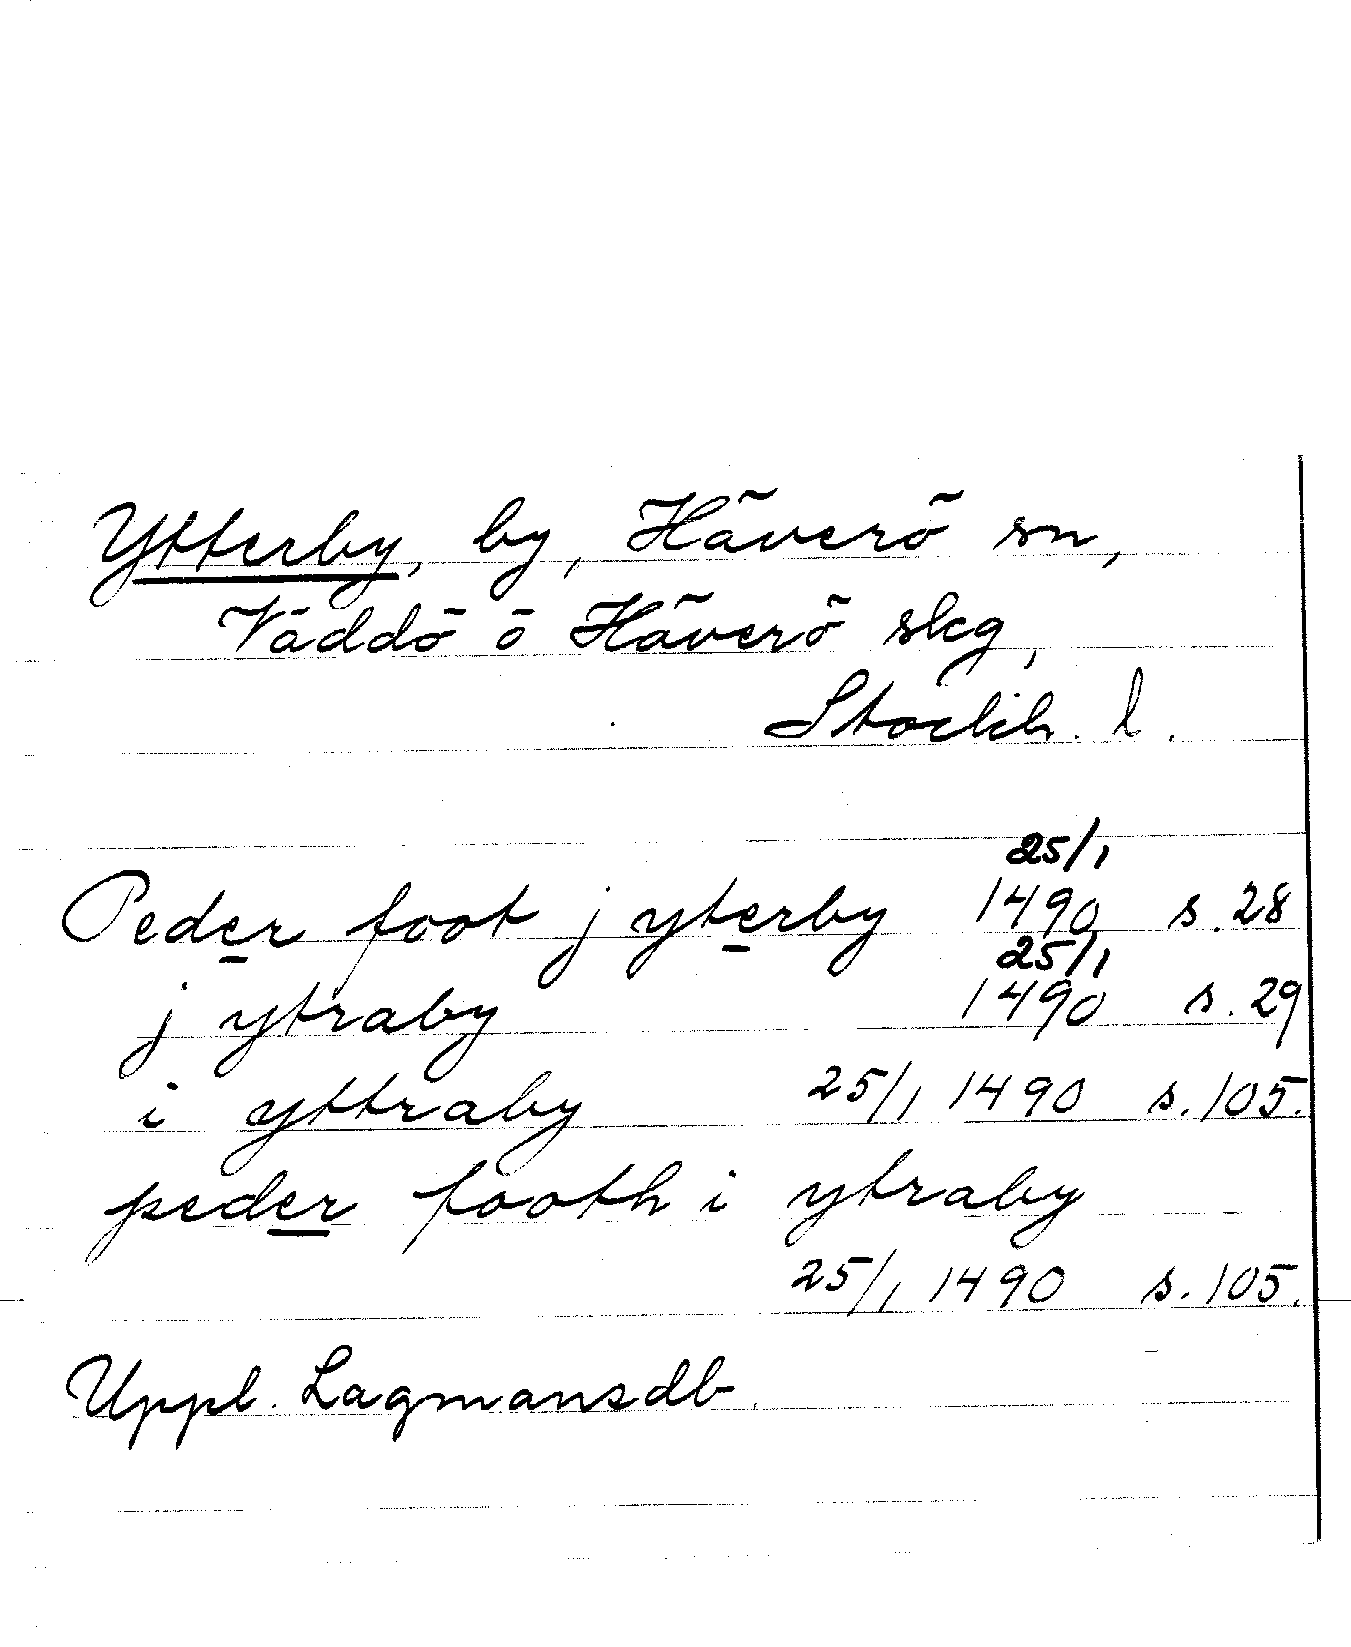 Ytterby, by, Häverö sn,
Väddö o Häverö skg,
Stockh. l.
25/1
Peder foot j yterby 1490 s. 28
25/1
j ytraby 1490 s. 29
i yttraby 25/1 1490 s. 105.
peder footh i ytraby
25/1 1490 s. 105.
Uppl. Lagmansdb.